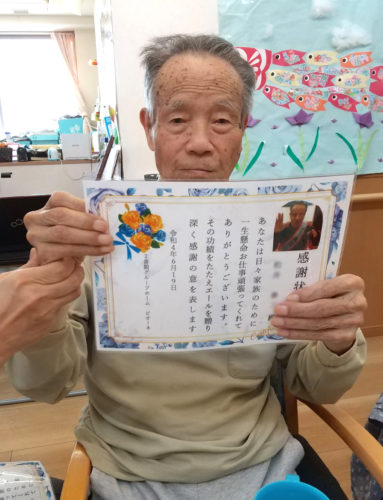 感謝状
あなたは日々家族のために
一生懸命お仕事頑張ってくれて
ありがとうございます。
その功績をたたえエールを贈り
深く感謝の意を表します
令和4年6月19日
グループホーム ビオーネ